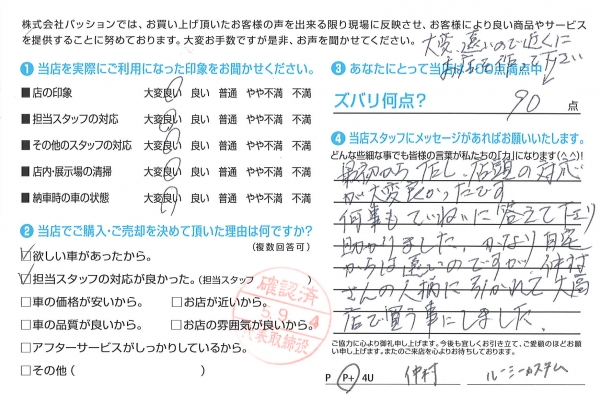 株式会社パッションでは、お買い上げ頂いたお客様の声を出来る限り現場に反映させ、お客様により良い商品やサービス
を提供することに努めております。大変お手数ですが是非、お声を聞かせてください。
大変、遠いので近くに
お店を作って下さい
❶ 当店を実際にご利用になった印象をお聞かせください。
■店の印象 大変良い 良い 普通 やや不満 不満
■担当スタッフの対応 大変良い 良い 普通 やや不満 不満
■その他のスタッフの対応 大変良い 良い 普通 やや不満 不満
■店内・展示場の清掃 大変良い 良い 普通 やや不満 不満
■納車時の車の状態 大変良い 良い 普通 やや不満 不満
❷ 当店でご購入・ご売却を決めて頂いた理由は何ですか?
(複数回答可)
☑欲しい車があったから。
☑担当スタッフの対応が良かった。(担当スタッフ )
□車の価格が安いから。 □お店が近いから。
□車の品質が良いから。 □お店の雰囲気が良いから。
□アフターサービスがしっかりしているから。
□その他( )
確認済
5.9.4
代表取締役
❸ あなたにとって当店は100点満点中
ズバリ何点? 90 点
❹ 当店スタッフにメッセージがあればお願いいたします。
どんな些細な事でも皆様の言葉が私たちの「力」になります(^^)!
最初から 店頭の対応
が大変良かったです
何事もていねいに答えて下さり
助かりました。かなり自宅
からは遠いのですが、仲村
さんの人柄に引かれて大高
店で買う事にしました。
ご協力に心より御礼申し上げます。今後も宜しくお引き立て、ご愛顧のほどお願
い申し上げます。またのご来店を心よりお待ちしております。
P P+ 4U 仲村 ルーミーカスタム